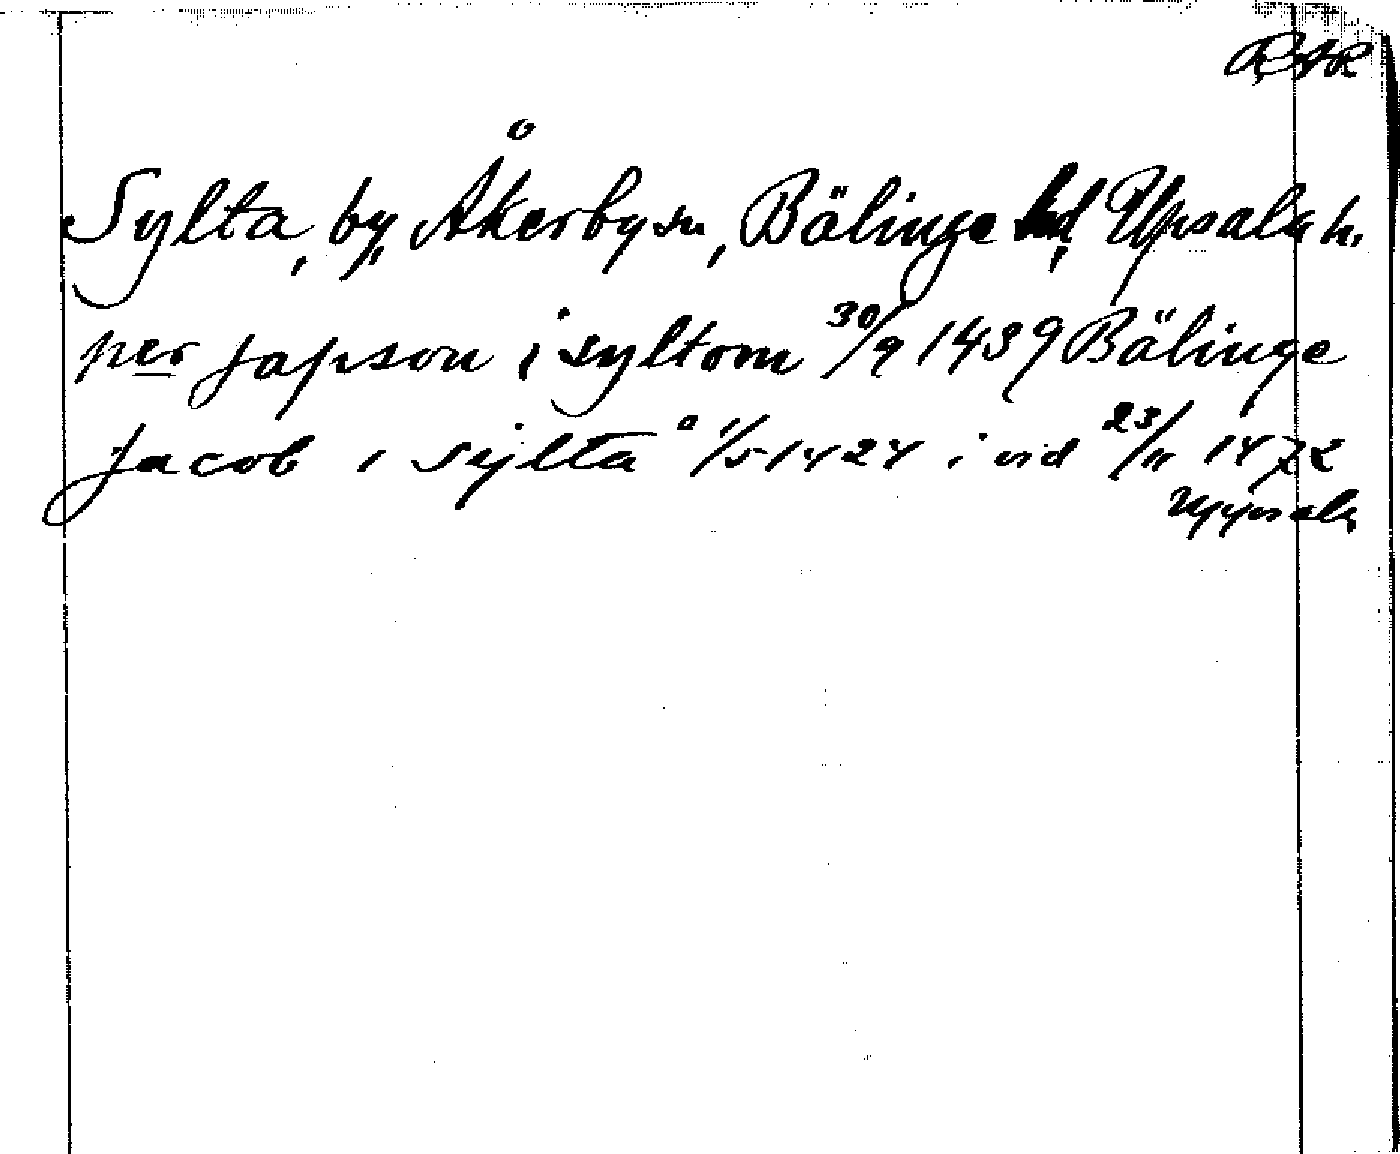 RAR
Sylta, by, Åkerby sn, Bälinge hd, Upsala h.
per japson i syltom 30/9 1439 Bälinge
jacob i Sylta 1/5 1424 i vid 23/11 1472
Uppsala